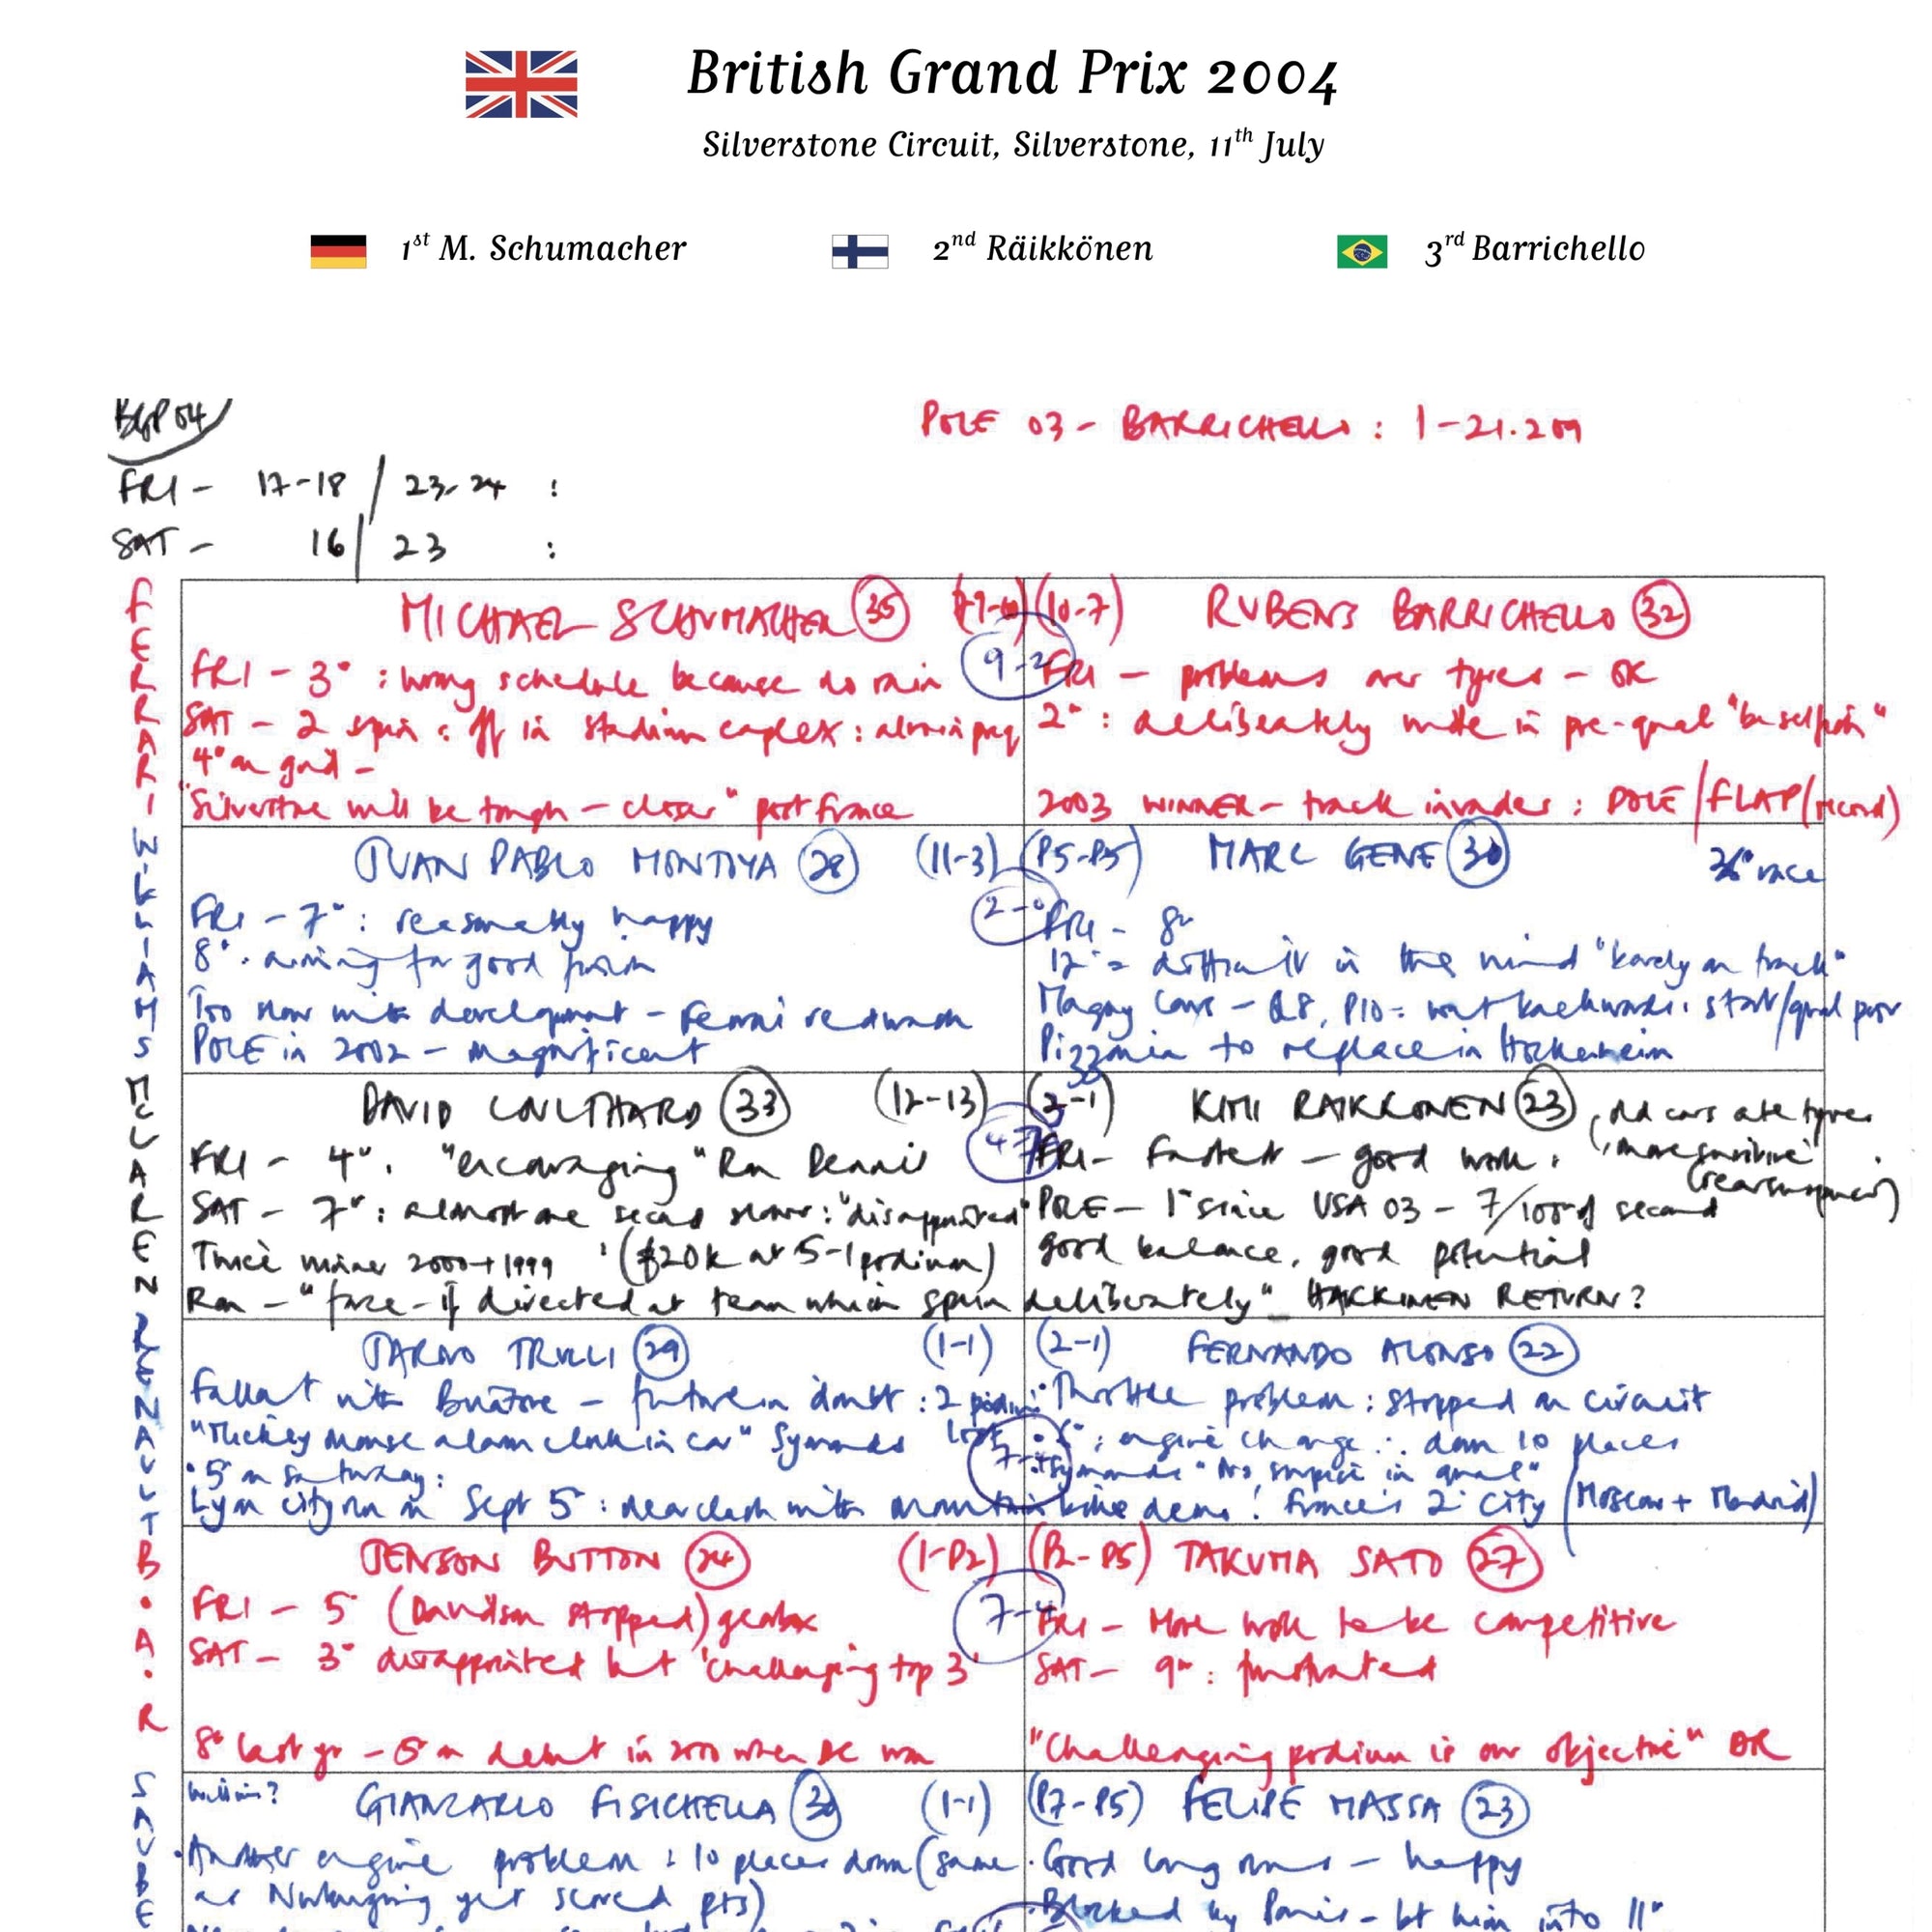 British Grand Prix 2004
Silverstone Circuit, Silverstone, 11th July
1st M. Schumacher 2nd Räikkönen 3rd Barrichello
BGP 04
POLE 03 - BARRICHELLO : 1-21.209
FRI - 17-18 / 23-24 :
SAT - 16 / 23 :
FERRARI
MICHAEL SCHUMACHER 35
FRI - 3° : wrong schedule because no rain 9-2
SAT - 2 spin : off in stadium complex :
4° on grid -
"Silverstone will be tough - closer" post France
(10-7) RUBENS BARRICHELLO 32
FRI - problems over tyres - OK
2° : deliberately wide in pre-qual
2003 WINNER - track invader : POLE / FLAP (record)
WILLIAMS
JUAN PABLO MONTOYA 28 (11-3)
FRI - 7° : reasonably happy 2-0
8° . aiming for good finish
Too slow with development - Ferrari
POLE in 2002 - magnificent
(P5-P5) MARC GENE 30 36° race
FRI - 8°
12° = difficult in the wind "barely on track"
Magny Cours - Q8, P10 = went backwards . start/qual poor
Pizzonia to replace in Hockenheim
MCLAREN
DAVID COULTHARD 33 (12-13)
FRI - 4° . "encouraging" Ron Dennis 4-7
SAT - 7° : almost one second slower : "disappointed"
Twice winner 2000 + 1999 : ($20k at 5-1 podium)
Ron - "farce - if directed at team which spun deliberately" HAKKINEN RETURN?
(3-1) KIMI RAIKKONEN 23 , old cars ate tyres
FRI - fastest - good work . "more sensitive"
(rear suspension)
POLE - 1° since USA 03 - 7/100 of second
good balance, good potential
RENAULT
JARNO TRULLI 29 (1-1)
Fallout with Briatore - future in doubt : 2
"Mickey mouse alarm clock in car" Symonds
. 5° on Saturday :
Lyon city run on Sept 5 : near clash with mountain bike demo ! France's 2° city (Moscow + Madrid)
(2-1) FERNANDO ALONSO 22
. Throttle problem : stopped on circuit
. 6° : engine change ∴ down 10 places
Symonds "No surprise in qual"
B.A.R
JENSON BUTTON 24 (1-P2)
FRI - 5° (Davidson stopped) gearbox 7-4
SAT - 3° disappointed but 'challenging top 3'
8° last yr - 5° on debut in 2000 when DC won
(P2-P5) TAKUMA SATO 27
FRI - More work to be competitive
SAT - 9° : frustrated
"Challenging podium is our objective" DR
SAUBE
Williams?
GIANCARLO FISICHELLA 30 (1-1)
. Another engine problem : 10 places down (same
as Nurburgring yet scored pts)
(P7-P5) FELIPE MASSA 23
. Good long runs - happy
. Blocked by Panis - let him into 11°